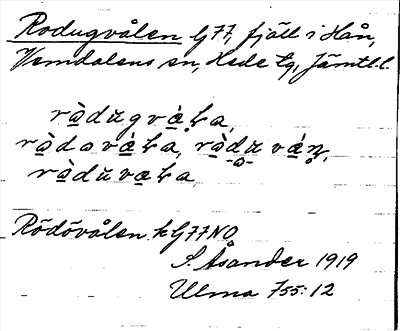 Rodugvålen G77, fjäll i Hån,
Vemdalens sn, Hede tg, Jämtl.l.
rà̤dŭgvá̤ƚa,
rà̤davá̤ƚa, rà̤du̯vá̤n̥,
rà̤dŭva̤ƚa,
Rödövålen k G77NO
S. Åsander 1919
Ulma 755:12